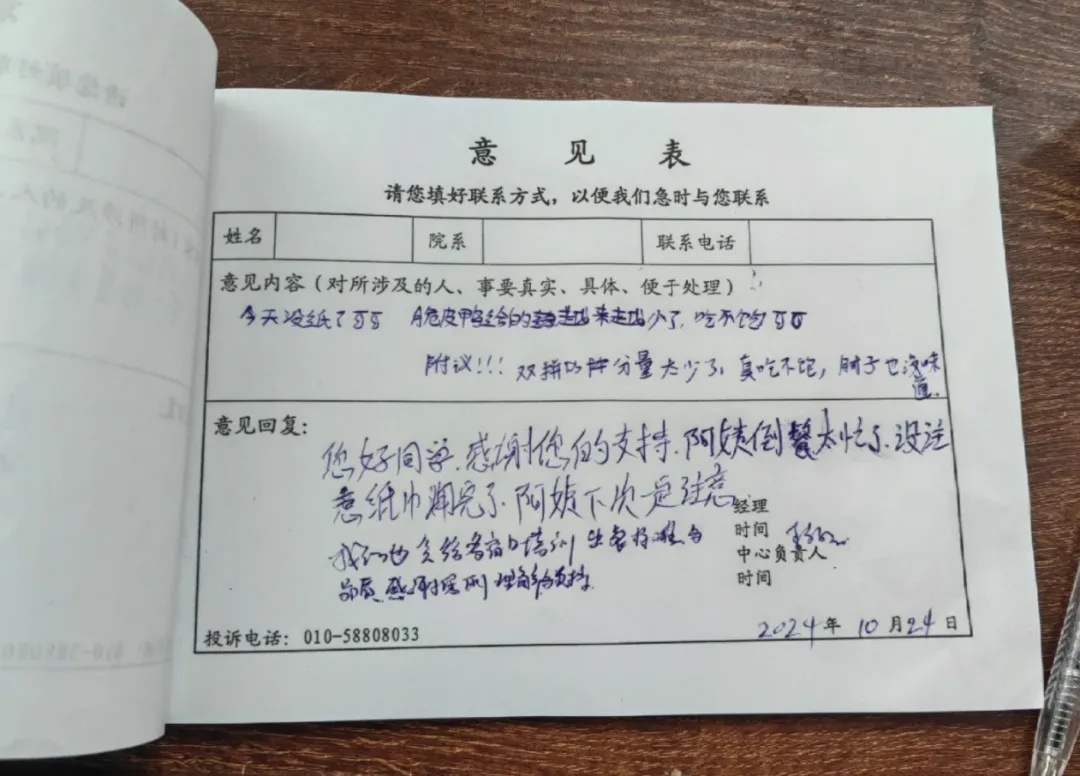 意 见 表
请您填好联系方式，以便我们急时与您联系
姓名 院系 联系电话
意见内容（对所涉及的人、事要真实、具体、便于处理）
今天没纸了 脆皮鸭给的 少了，吃不饱
附议!!! 双拼 分量太少了，真吃不饱， 子也没味道.
意见回复：
您好同学.感谢您的支持.阿姨倒餐太忙了.没注
意纸巾用完了.阿姨下次一定注意
经理
我们也会给各窗口培训
时间
中心负责人
品质.感谢 理解与支持.
时间
投诉电话：010-58808033
2024年 10月24日